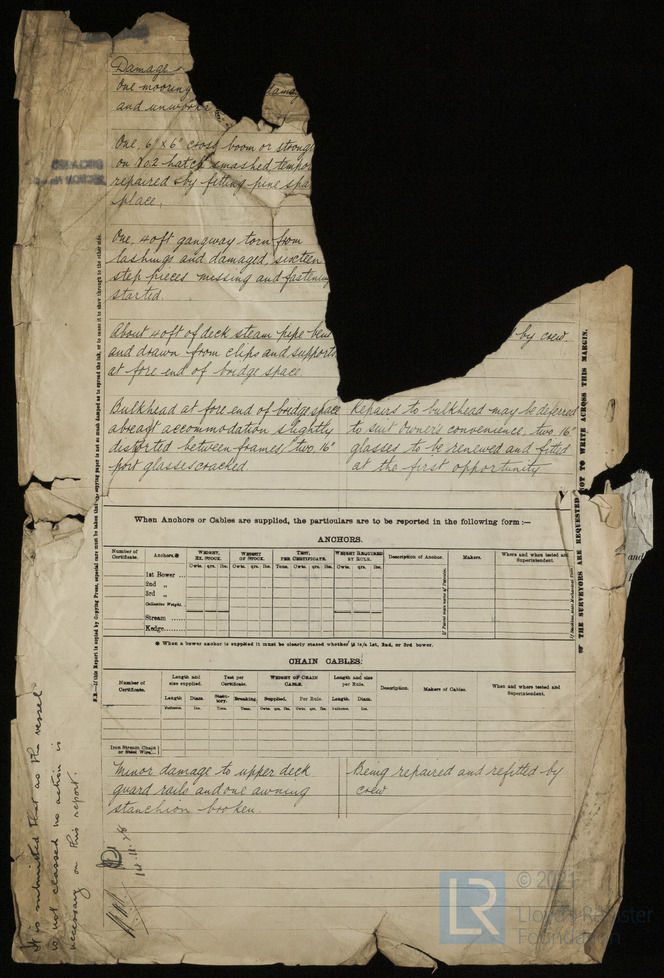 Damage
One mooring
damag
and unwor
One, 6" x 6" cross boom or strong
on No2 hatch smashed tempor
repaired by fitting pine spa
place,
One, 40ft gangway torn from
lashings and damaged, sixteen
step pieces missing and fastening
started.
About 40ft of deck steam pipe ben
by crew.
and drawn from clips and supports
at fore end of bridge space
Bulkhead at fore end of bridge space
abreast accommodation slightly
distorted between frames, two, 16"
port glasses cracked.
Repairs to bulkhead may be deferred
to suit Owner's convenience, two, 16"
glasses to be renewed and fitted
at the first opportunity
When Anchors or Cables are supplied, the particulars are to be reported in the following form:—
ANCHORS.
Number of Certificate.
Anchors.
WEIGHT, EX. STOCK.
WEIGHT OF STOCK.
TEST, PER CERTIFICATE.
WEIGHT REQUIRED BY RULE.
Description of Anchor.
Makers.
Where and when tested and Superintendent.
Cwts. qrs. lbs.
Cwts. qrs. lbs.
Tons. Cwts. qrs. lbs.
Cwts. qrs. lbs.
1st Bower ...
2nd „
3rd „
Collective Weight.
Stream ......
Kedge.........
When a bower anchor is supplied it must be clearly stated whether it is a 1st, 2nd, or 3rd bower.
CHAIN CABLES.
Number of Certificate.
Length and size supplied.
Test per Certificate.
WEIGHT OF CHAIN CABLE.
Length and size per Rule.
Description.
Makers of Cables.
Where and when tested and Superintendent.
Length Diam. Statutory. Breaking. Supplied. Per Rule Length. Diam.
Iron Stream Chain or Steel Wire...
Minor damage to upper deck
guard rails and one awning
stanchion broken.
Being repaired and refitted by
crew
THE SURVEYORS ARE REQUESTED NOT TO WRITE ACROSS THIS MARGIN.
N.B.—If this Report is copied by Copying Press, especial care must be taken that the copying paper is not so much damped as to spread the ink, or to cause it to show through to the other side.
It is submitted that as this vessel
is not classed no action is
necessary on this report.
and
LR
© 2021
Lloyd's Register
Foundation